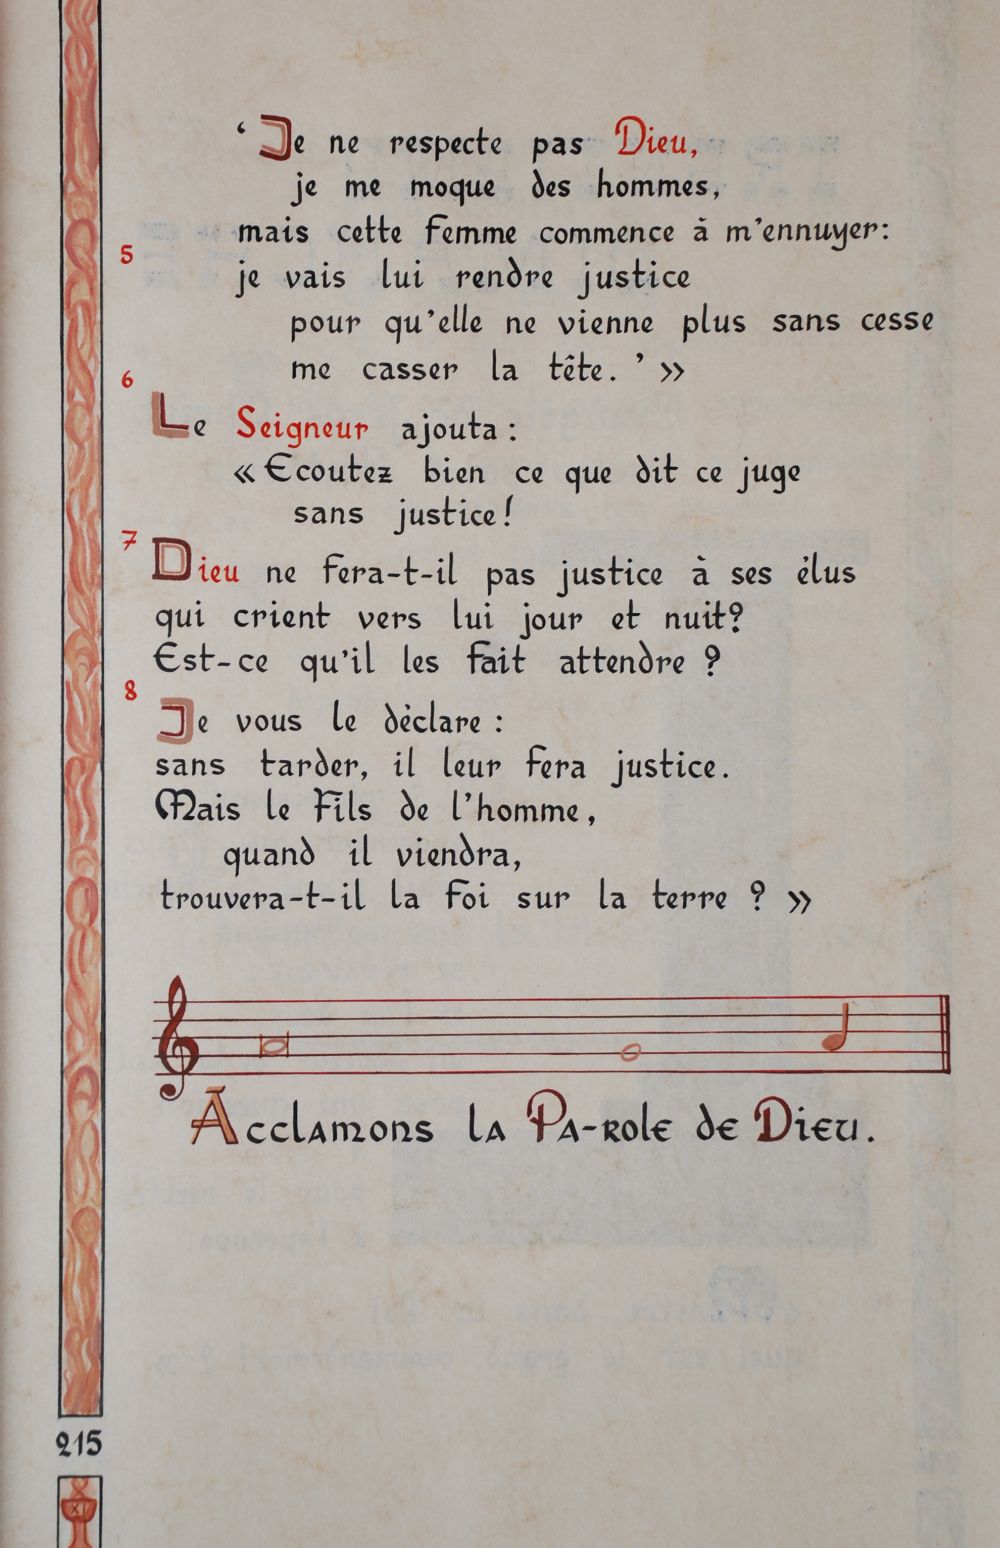 ‘ Je ne respecte pas Dieu,
je me moque des hommes,
mais cette femme commence à m’ennuyer:
5
je vais lui rendre justice
pour qu’elle ne vienne plus sans cesse
me casser la tête. ’ »
6
Le Seigneur ajouta :
« Ecoutez bien ce que dit ce juge
sans justice !
7
Dieu ne fera-t-il pas justice à ses élus
qui crient vers lui jour et nuit?
Est-ce qu’il les fait attendre ?
8
Je vous le déclare :
sans tarder, il leur fera justice.
Mais le Fils de l’homme,
quand il viendra,
trouvera-t-il la foi sur la terre ? »
Acclamons la Pa-role de Dieu.
215
XI